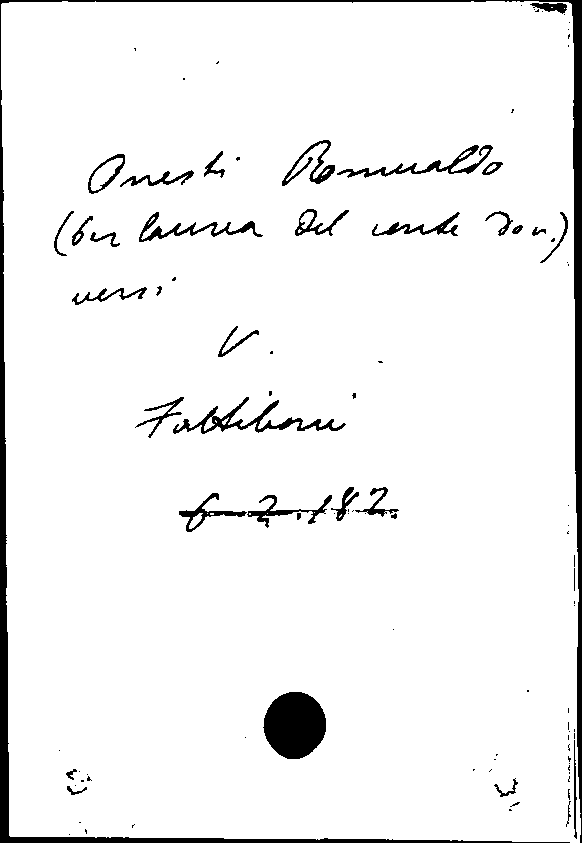 Onesti Romualdo
(per laurea del conte Dom.)
versi
V.
Fattiboni
6 2.182.